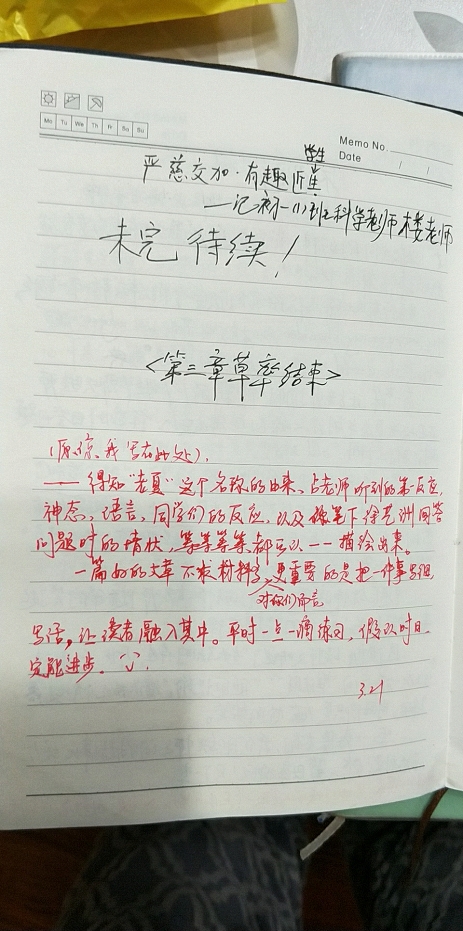 Mo Tu We Th Fr Sa Su
Memo No.
Date / /
学生
严慈交加·有趣
—记初一(1)班科学老师楼老师
未完待续!
<第三章草率结束>
(原谅我写在此处)。
—— 得知“老夏”这个名称的由来、占老师听到的第一反应,
神态、语言、同学们的反应,以及 笔下徐艺洲回答
问题时的情状,等等等等都可以一一描绘出来。
一篇好的文章不求材料多,更重要的是把一件事写细
对你们而言
写活,让读者融入其中。平时一点一滴练习,假以时日,
定能进步。
3.21